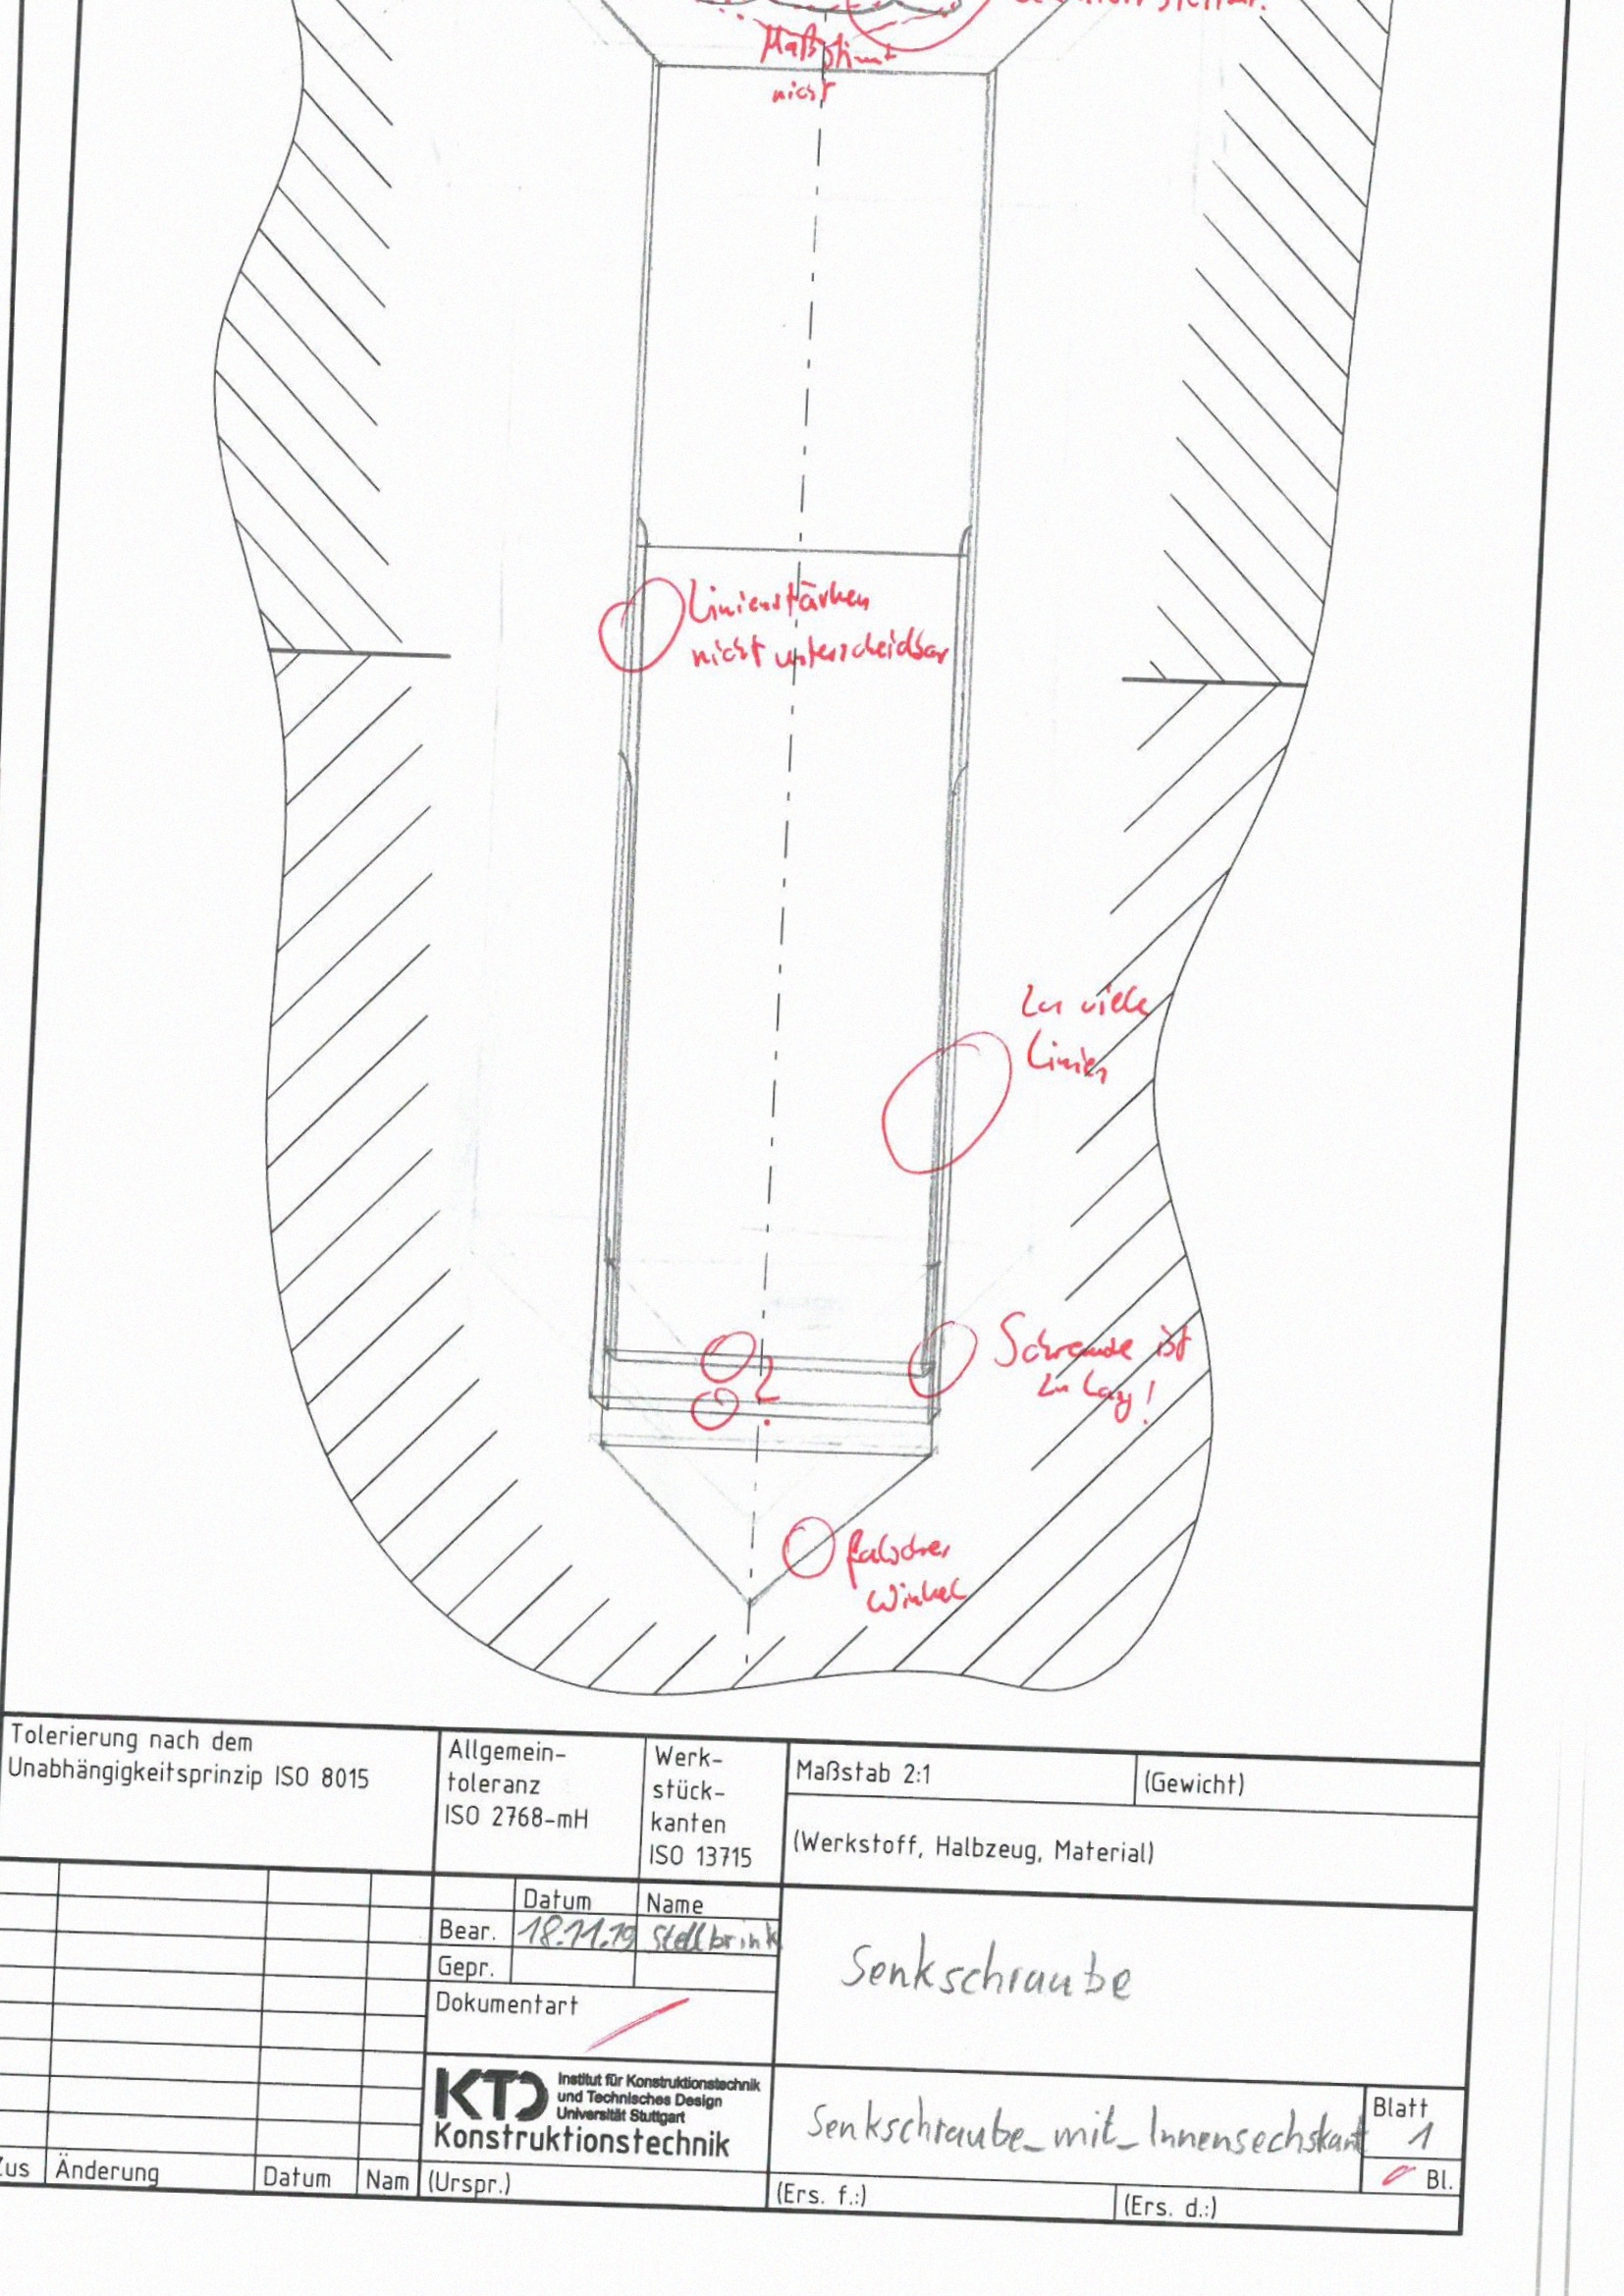 Maß stimmt
nicht
Linienstärken
nicht unterscheidbar
Zu viele
Linien
Schraube ist
zu lang!
?
falscher
Winkel
Tolerierung nach dem
Unabhängigkeitsprinzip ISO 8015
Allgemein-
toleranz
ISO 2768-mH
Werk-
stück-
kanten
ISO 13715
Maßstab 2:1
(Gewicht)
(Werkstoff, Halbzeug, Material)
Datum Name
Bear. 18.11.19 Stellbrink
Gepr.
Dokumentart
Senkschraube
KTD Institut für Konstruktionstechnik
und Technisches Design
Universität Stuttgart
Konstruktionstechnik
Senkschraube_mit_Innensechskant
Blatt
1
Bl.
Zus Änderung Datum Nam (Urspr.) (Ers. f.:) (Ers. d.:)